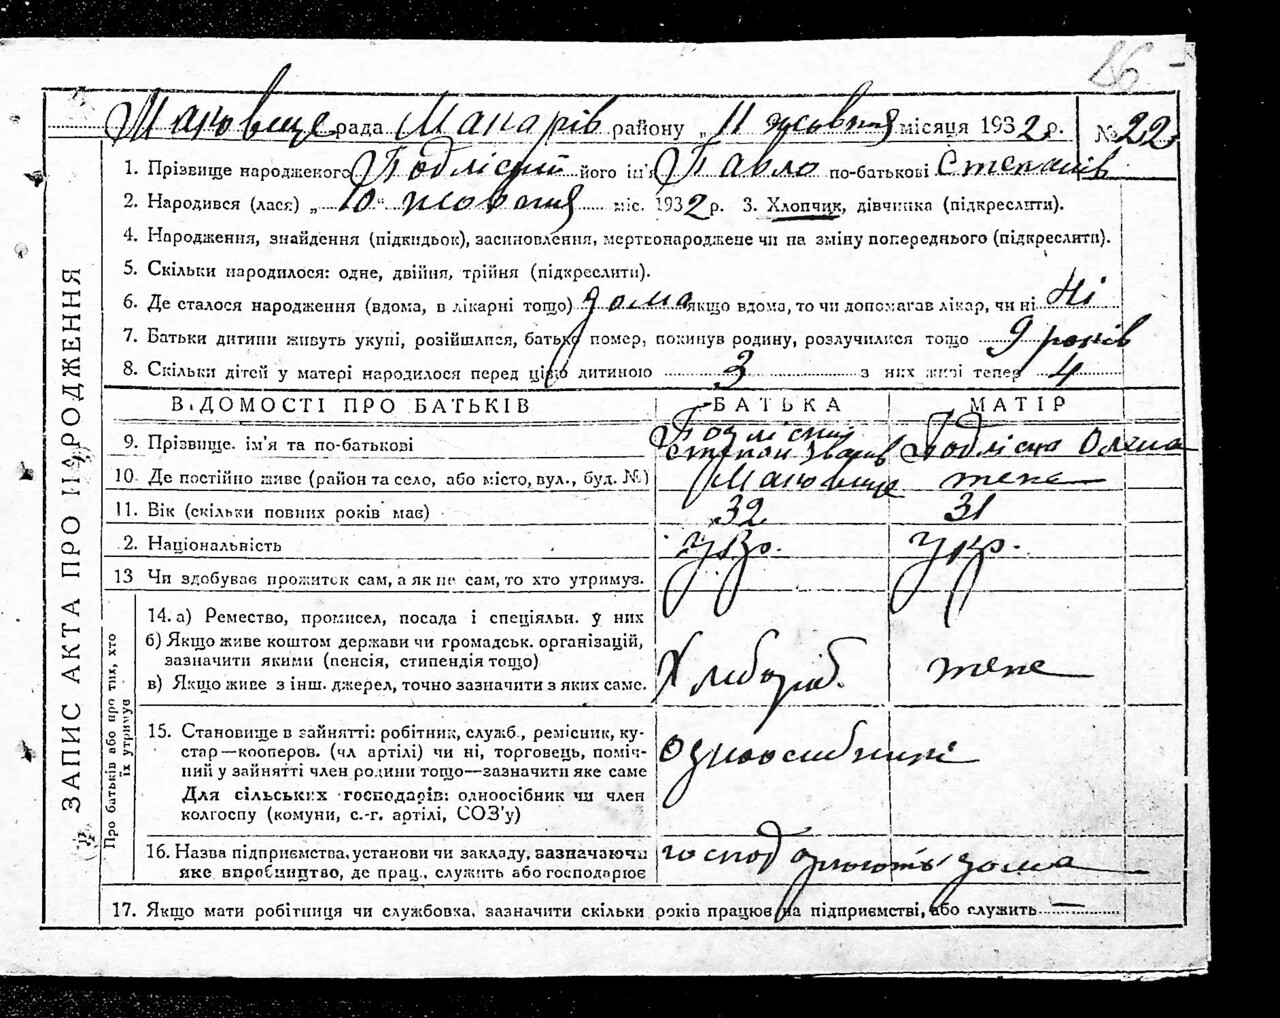 86
Маковище рада Макарів району „ 11 жовтня місяця 1932 р. № 22
1. Прізвище народженого Подлісний його ім'я Павло по-батькові Степанів
2. Народився (лася) „ 10 “ жовтня міс. 1932 р. 3. Хлопчик, дівчинка (підкреслити).
4. Народження, знайдення (підкидьок), засиновлення, мертвонароджене чи на зміну попереднього (підкреслити).
5. Скільки народилося: одне, двійня, трійня (підкреслити).
6. Де сталося народження (вдома, в лікарні тощо) дома якщо вдома, то чи допомагав лікар, чи ні ні
7. Батьки дитини живуть укупі, розійшлися, батько помер, покинув родину, розлучилися тощо 9 років
8. Скільки дітей у матері народилося перед цією дитиною 3 з них живі тепер 4
ВІДОМОСТІ ПРО БАТЬКІВ БАТЬКА МАТІР
9. Прізвище. ім'я та по-батькові Подлісний Степан Подлісна Олена
10. Де постійно живе (район та село, або місто, вул., буд. №) Маковище теже
11. Вік (скільки повних років має) 32 31
2. Національність укр. укр.
13 Чи здобуває прожиток сам, а як не сам, то хто утримує.
14. а) Ремество, промисел, посада і спеціяльн. у них
б) Якщо живе коштом держави чи громадськ. організацій,
зазначити якими (пенсія, стипендія тощо)
в) Якщо живе з інш. джерел, точно зазначити з яких саме.
Хлібороб. теже
15. Становище в зайнятті: робітник, служб., ремісник, ку-
стар—кооперов. (чл артілі) чи ні, торговець, поміч-
ний у зайнятті член родини тощо—зазначити яке саме
Для сільських господарів: одноосібник чи член
колгоспу (комуни, с.-г. артілі, СОЗ'у)
одноосибники
16. Назва підприємства, установи чи закладу, зазначаючи
яке виробництво, де прац., служить або господарює
господ дома
17. Якщо мати робітниця чи службовка, зазначити скільки років працює на підприємстві, або служить —
ЗАПИС АКТА ПРО НАРОДЖЕННЯ
Про батьків або про тих, хто
їх утримує